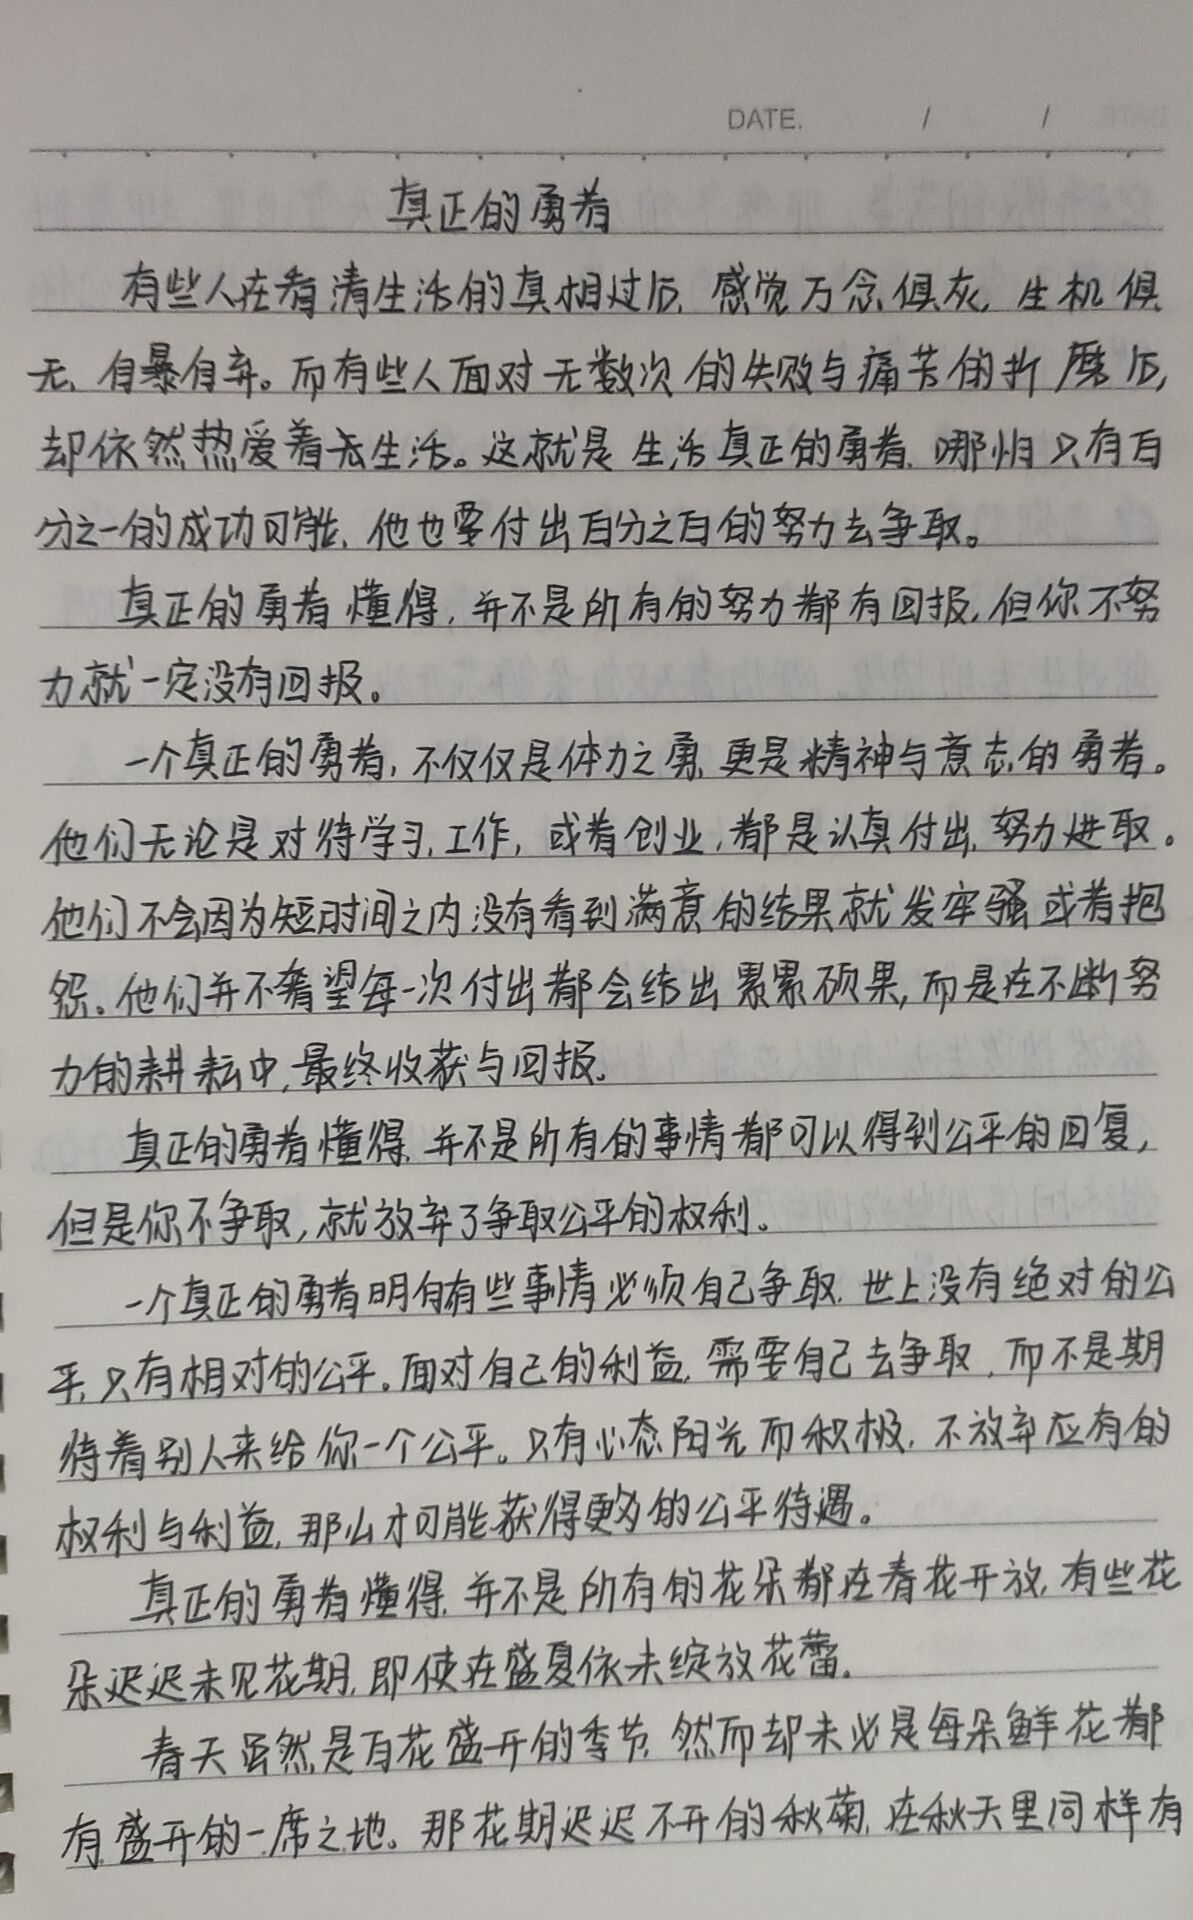 DATE. / /
真正的勇者
有些人在看清生活的真相过后,感觉万念俱灰,生机俱
无,自暴自弃。而有些人面对无数次的失败与痛苦的折磨后,
却依然热爱着生活。这就是生活真正的勇者,哪怕只有百
分之一的成功可能,他也要付出百分之百的努力去争取。
真正的勇者懂得,并不是所有的努力都有回报,但你不努
力就一定没有回报。
一个真正的勇者,不仅仅是体力之勇,更是精神与意志的勇者。
他们无论是对待学习,工作,或者创业,都是认真付出,努力进取。
他们不会因为短时间之内没有看到满意的结果就发牢骚或者抱
怨。他们并不奢望每一次付出都会结出累累硕果,而是在不断努
力的耕耘中,最终收获与回报。
真正的勇者懂得,并不是所有的事情都可以得到公平的回复,
但是你不争取,就放弃了争取公平的权利。
一个真正的勇者明白有些事情必须自己争取,世上没有绝对的公
平,只有相对的公平。面对自己的利益,需要自己去争取,而不是期
待着别人来给你一个公平。只有心态阳光而积极,不放弃应有的
权利与利益,那么才可能获得更多的公平待遇。
真正的勇者懂得,并不是所有的花朵都在春花开放,有些花
朵迟迟未见花期,即使在盛夏依未绽放花蕾。
春天虽然是百花盛开的季节,然而却未必是每朵鲜花都
有盛开的一席之地。那花期迟迟不开的秋菊,在秋天里同样有